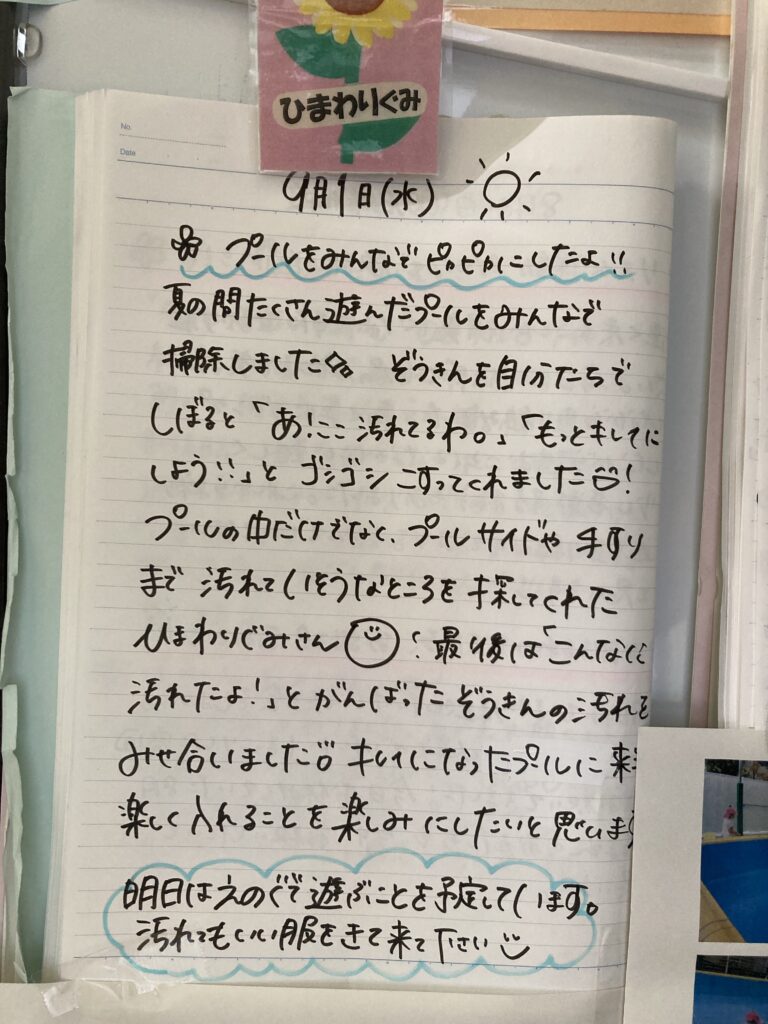 ひまわりぐみ
No.
Date
9月1日(水)
プールをみんなでピカピカにしたよ!!
夏の間たくさん遊んだプールをみんなで
掃除しました ぞうきんを自分たちで
しぼると「あ!ここ汚れてるわ。」「もっとキレイに
しよう!!」と ゴシゴシ こすってくれました!
プールの中だけでなく、プールサイドや 手すり
まで 汚れていそうなところを 探してくれた
ひまわりぐみさん! 最後は「こんなに
汚れたよ!」と がんばった ぞうきんの汚れを
みせ合いました キレイになったプールに 来
楽しく 入れることを 楽しみにしたいと 思います
明日はえのぐで遊ぶことを予定しています。
汚れてもいい服をきて来て下さい